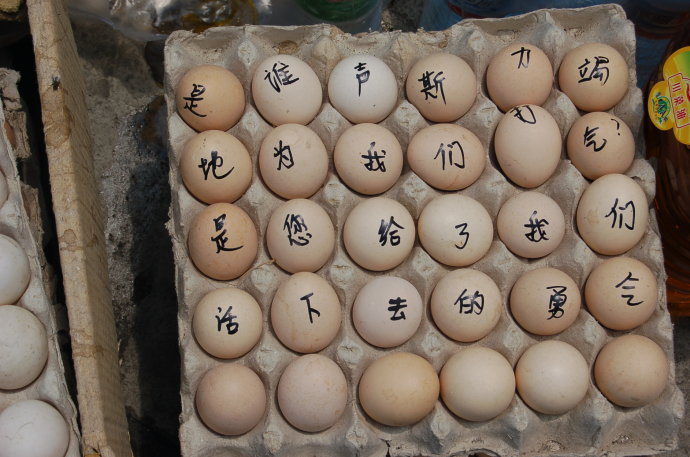 是谁声斯力竭
地为我们打气?
是您给了我们
活下去的勇气
三欢